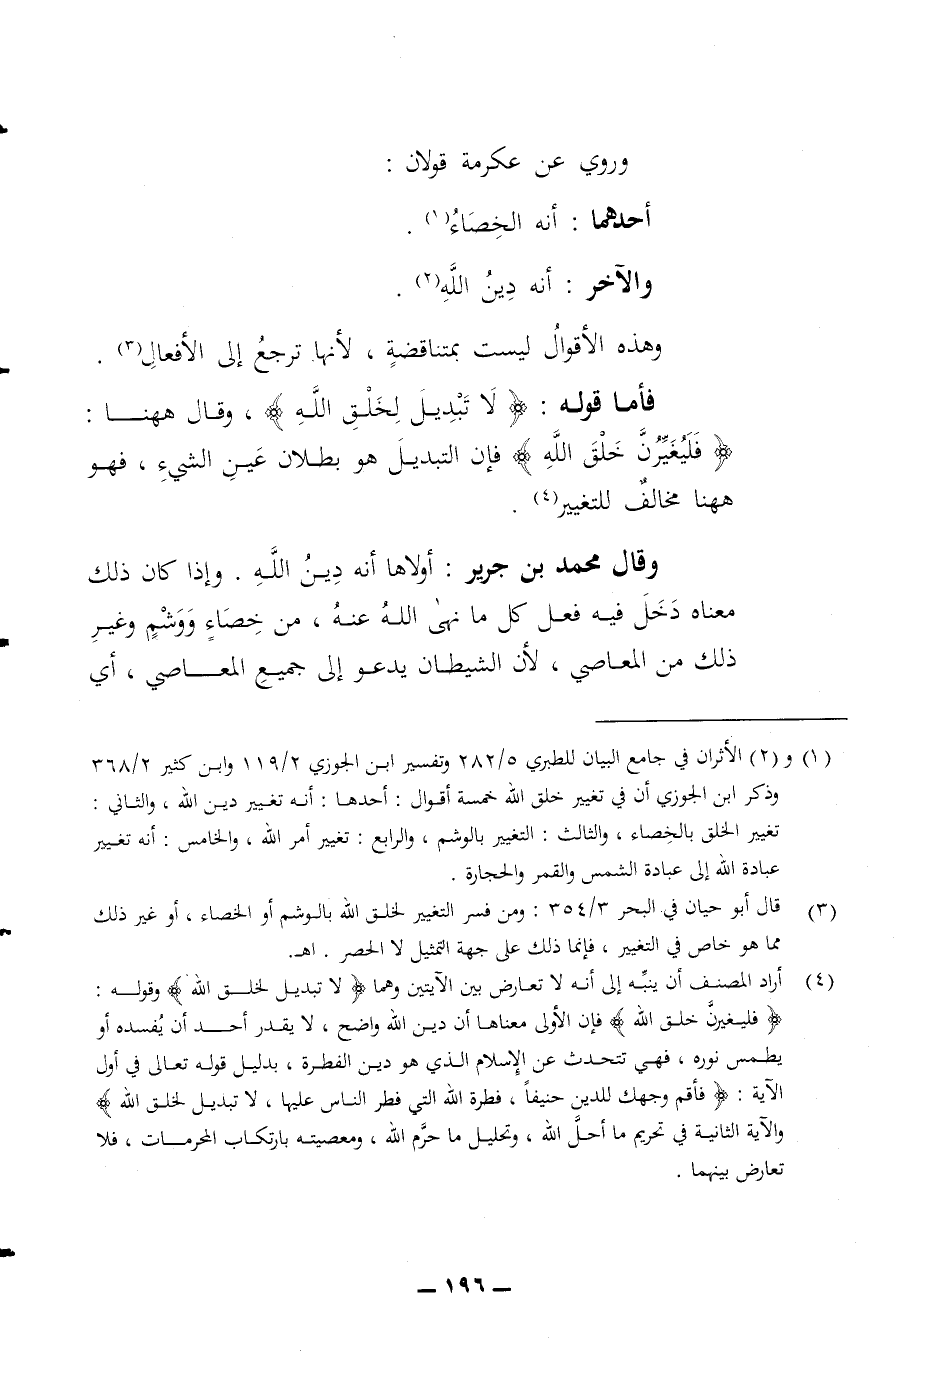 وروي عن عكرمة قولان :
أحدهما : أنه الخِصَاءُ(١) .
والآخر : أنه دِينُ اللَّهِ(٢) .
وهذه الأقوالُ ليست بمتناقضةٍ ، لأنها ترجعُ إلى الأفعالِ(٣) .
فأما قوله : ﴿ لَا تَبْدِيلَ لِخَلْقِ اللَّهِ ﴾ ، وقال ههنا :
﴿ فَلَيُغَيِّرُنَّ خَلْقَ اللَّهِ ﴾ فإن التبديلَ هو بطلان عَينِ الشيءِ ، فهو
ههنا مخالفٌ للتغيير(٤) .
وقال محمد بن جرير : أولاها أنه دِينُ اللَّهِ . وإذا كان ذلك
معناه دَخَلَ فيه فعل كل ما نهىٰ اللهُ عنهُ ، من خِصَاءٍ وَوَشْمٍ وغيرِ
ذلك من المعاصي ، لأن الشيطان يدعو إلى جميعِ المعاصي ، أي
(١) و (٢) الأثران في جامع البيان للطبري ٢٨٢/٥ وتفسير ابن الجوزي ١١٩/٢ وابن كثير ٣٦٨/٢
وذكر ابن الجوزي أن في تغيير خلق الله خمسة أقوال : أحدها : أنه تغيير دين الله ، والثاني :
تغيير الخلق بالخِصاء ، والثالث : التغيير بالوشم ، والرابع : تغيير أمر الله ، والخامس : أنه تغيير
عبادة الله إلى عبادة الشمس والقمر والحجارة .
(٣) قال أبو حيان في البحر ٣٥٤/٣ : ومن فسر التغيير لخلق الله بالوشم أو الخصاء ، أو غير ذلك
مما هو خاص في التغيير ، فإنما ذلك على جهة التمثيل لا الحصر . اهـ.
(٤) أراد المصنف أن ينبِّه إلى أنه لا تعارض بين الآيتين وهما ﴿ لا تبديل لخلق الله ﴾ وقوله :
﴿ فليغيرنَّ خلق الله ﴾ فإن الأولى معناها أن دين الله واضح ، لا يقدر أحد أن يُفسده أو
يطمس نوره ، فهي تتحدث عن الإسلام الذي هو دين الفطرة ، بدليل قوله تعالى في أول
الآية : ﴿ فأقم وجهك للدين حنيفاً ، فطرة الله التي فطر الناس عليها ، لا تبديل لخلق الله ﴾
والآية الثانية في تحريم ما أحلَّ الله ، وتحليل ما حرَّم الله ، ومعصيته بارتكاب المحرمات ، فلا
تعارض بينهما .
— ١٩٦ —